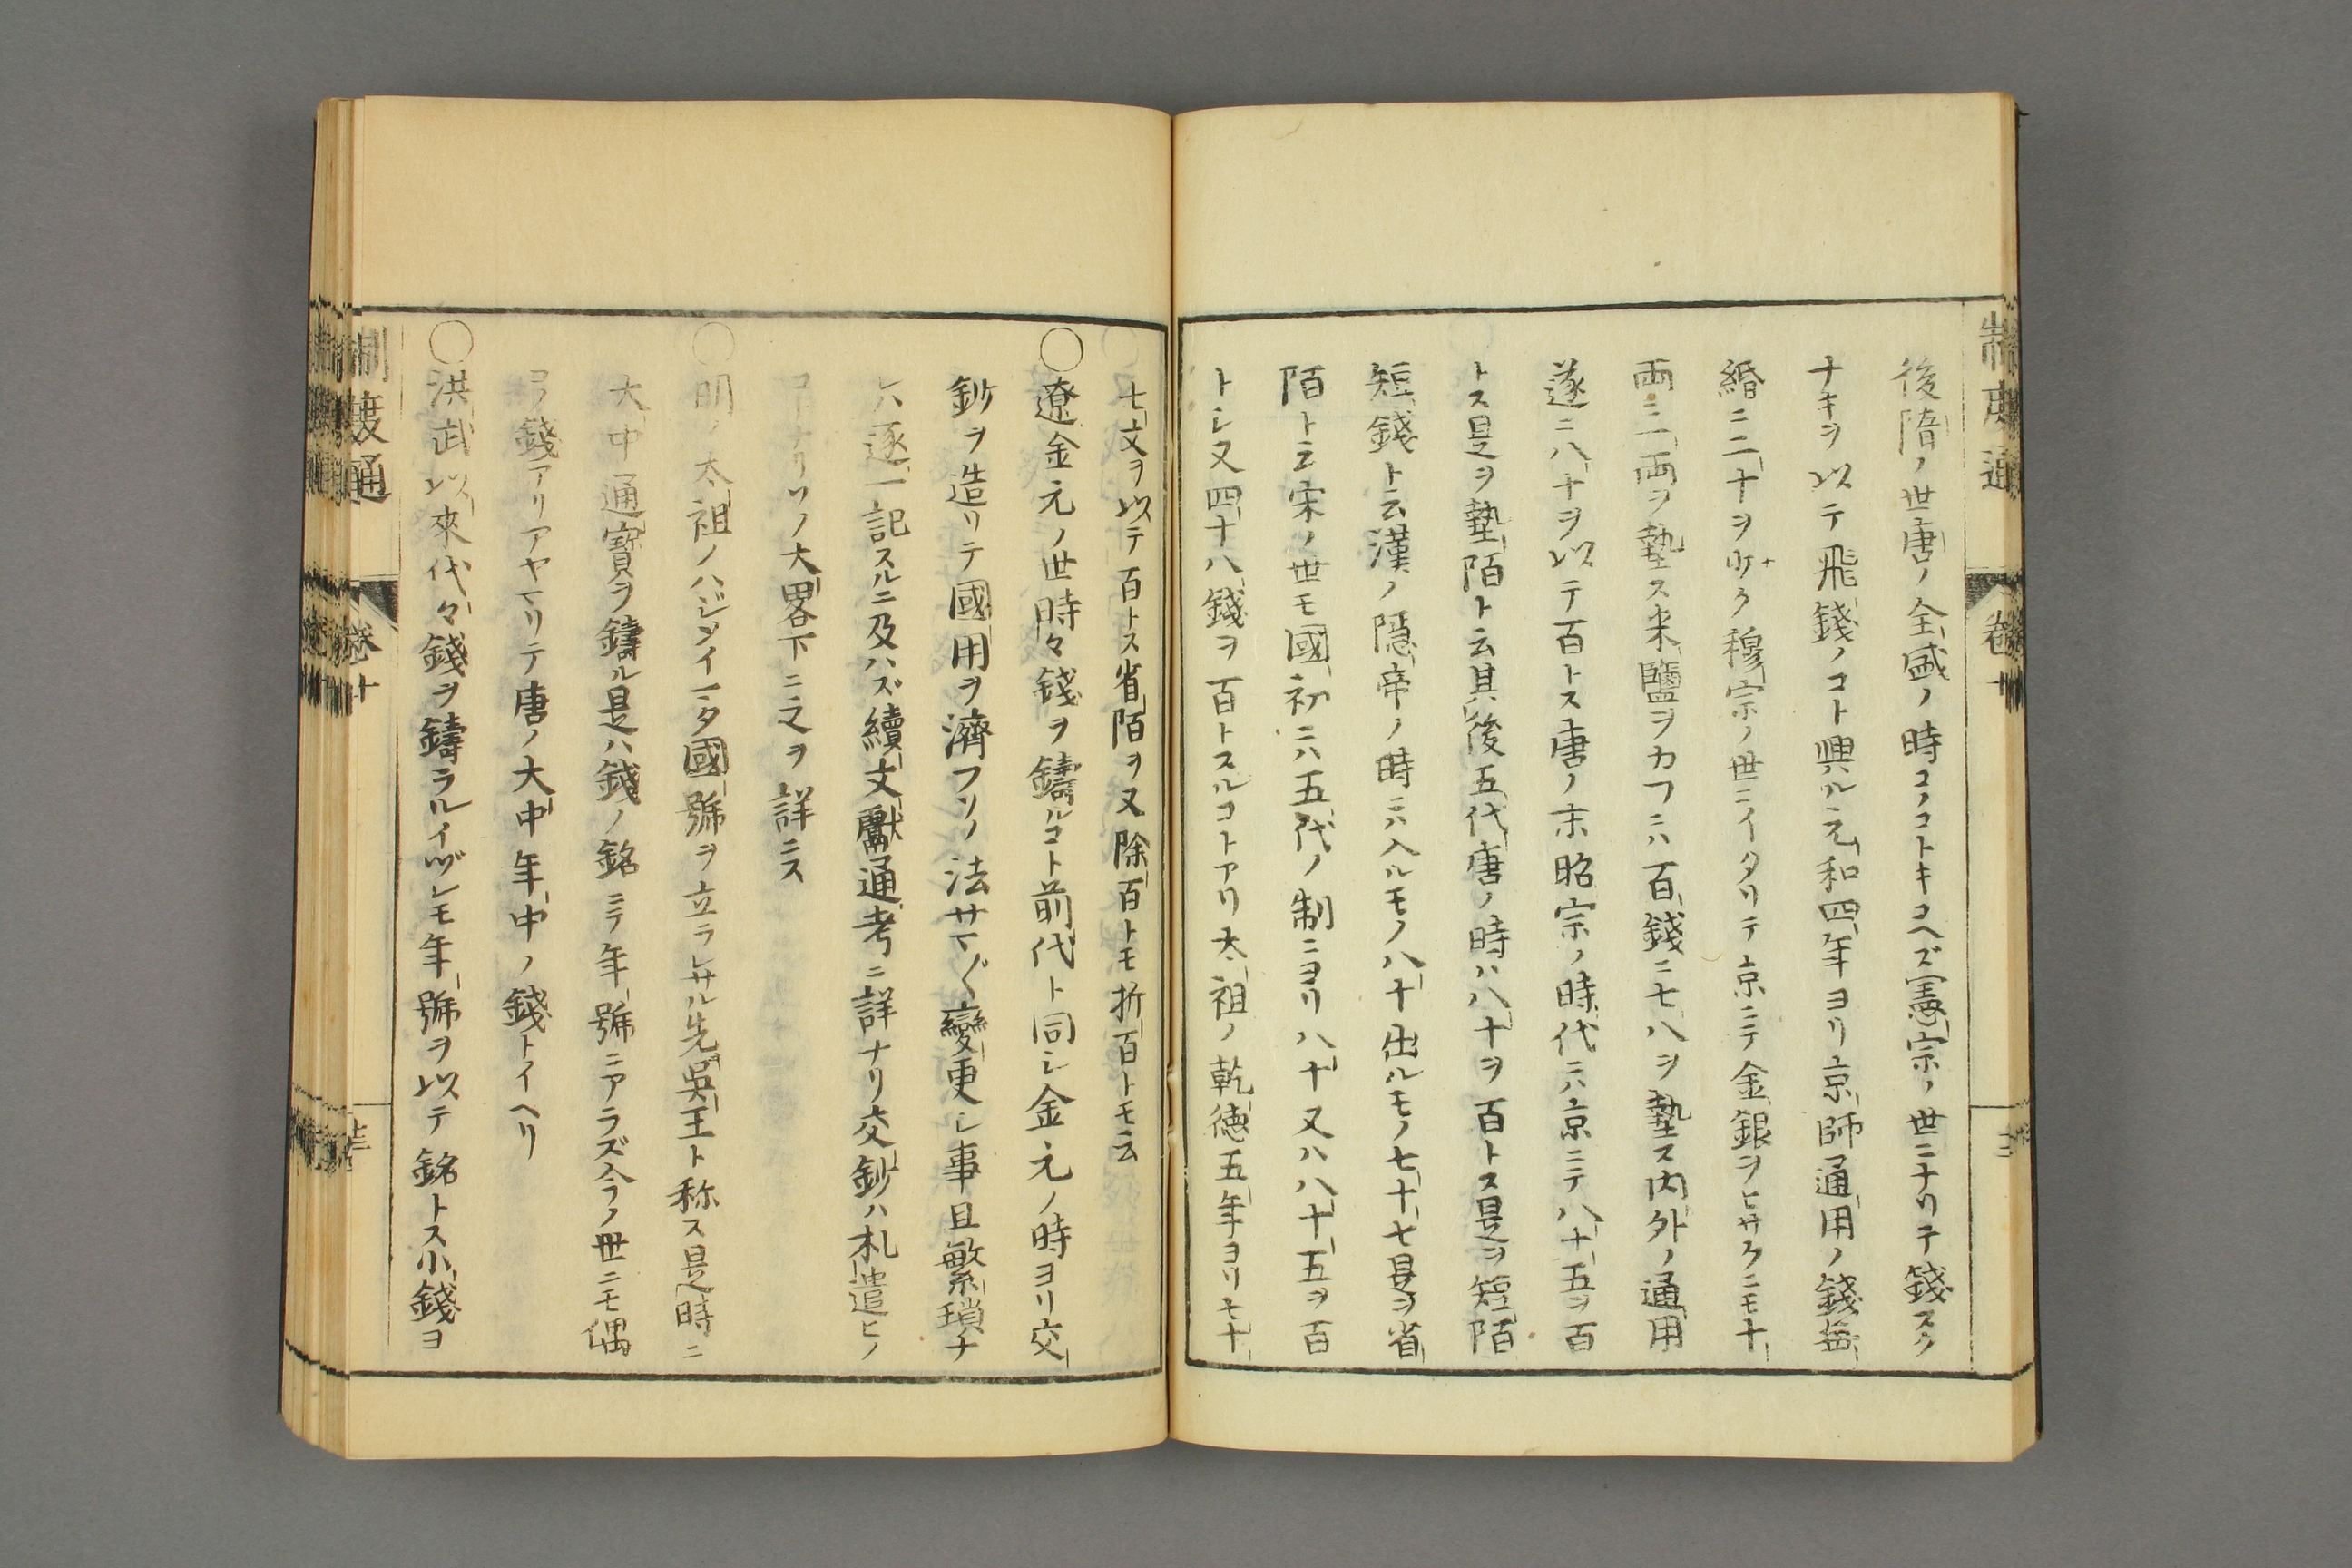 制度通
卷十
後隋ノ世唐ノ全盛ノ時コノコトキコヘズ憲宗ノ世ニナリテ錢スク
ナキヲ以テ飛錢ノコト興ル元和四年ヨリ京師通用ノ錢每
緡ニ二十ヲ少ク穆宗ノ世ニイタリテ京ニテ金銀ヲヒサクニモ十
両ニ一両ヲ墊ス米鹽ヲカフニハ百錢ニ七八ヲ墊ス内外ノ通用
遂ニ八十ヲ以テ百トス唐ノ末昭宗ノ時代ニハ京ニテ八十五ヲ百
トス是ヲ墊陌ト云其後五代唐ノ時ハ八十ヲ百トス是ヲ短陌
短錢ト云漢ノ隱帝ノ時ニハ入ルモノ八十出ルモノ七十七是ヲ省
陌ト云宋ノ世モ國初ニハ五代ノ制ニヨリ八十又ハ八十五ヲ百
トシ又四十八錢ヲ百トスルコトアリ太祖ノ乾徳五年ヨリ七十
七文ヲ以テ百トス省陌ヲ又除百トモ折百トモ云
○遼金元ノ世時々錢ヲ鑄ルコト前代ト同シ金元ノ時ヨリ交
鈔ヲ造リテ國用ヲ濟フソノ法サマ〲變更シ事且繁瑣ナ
レハ逐一記スルニ及ハズ續文獻通考ニ詳ナリ交鈔ハ札遣ヒノ
コトナリソノ大畧下ニ之ヲ詳ニス
○明ノ太祖ノハジメイマタ國號ヲ立ラレサル先呉王ト称ス是時ニ
大中通寳ヲ鑄ル是ハ錢ノ銘ニテ年號ニアラズ今ノ世ニモ偶
コノ錢アリアヤマリテ唐ノ大中年中ノ錢トイヘリ
○洪武以來代々錢ヲ鑄ラルイヅレモ年號ヲ以テ銘トス小錢ヨ
制度通
卷十